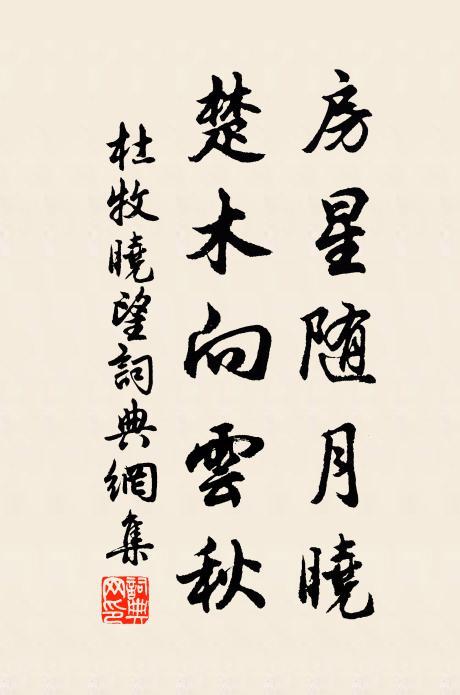 房星随月曉
楚木向雲秋
杜牧曉望詞典網集
詞典网印